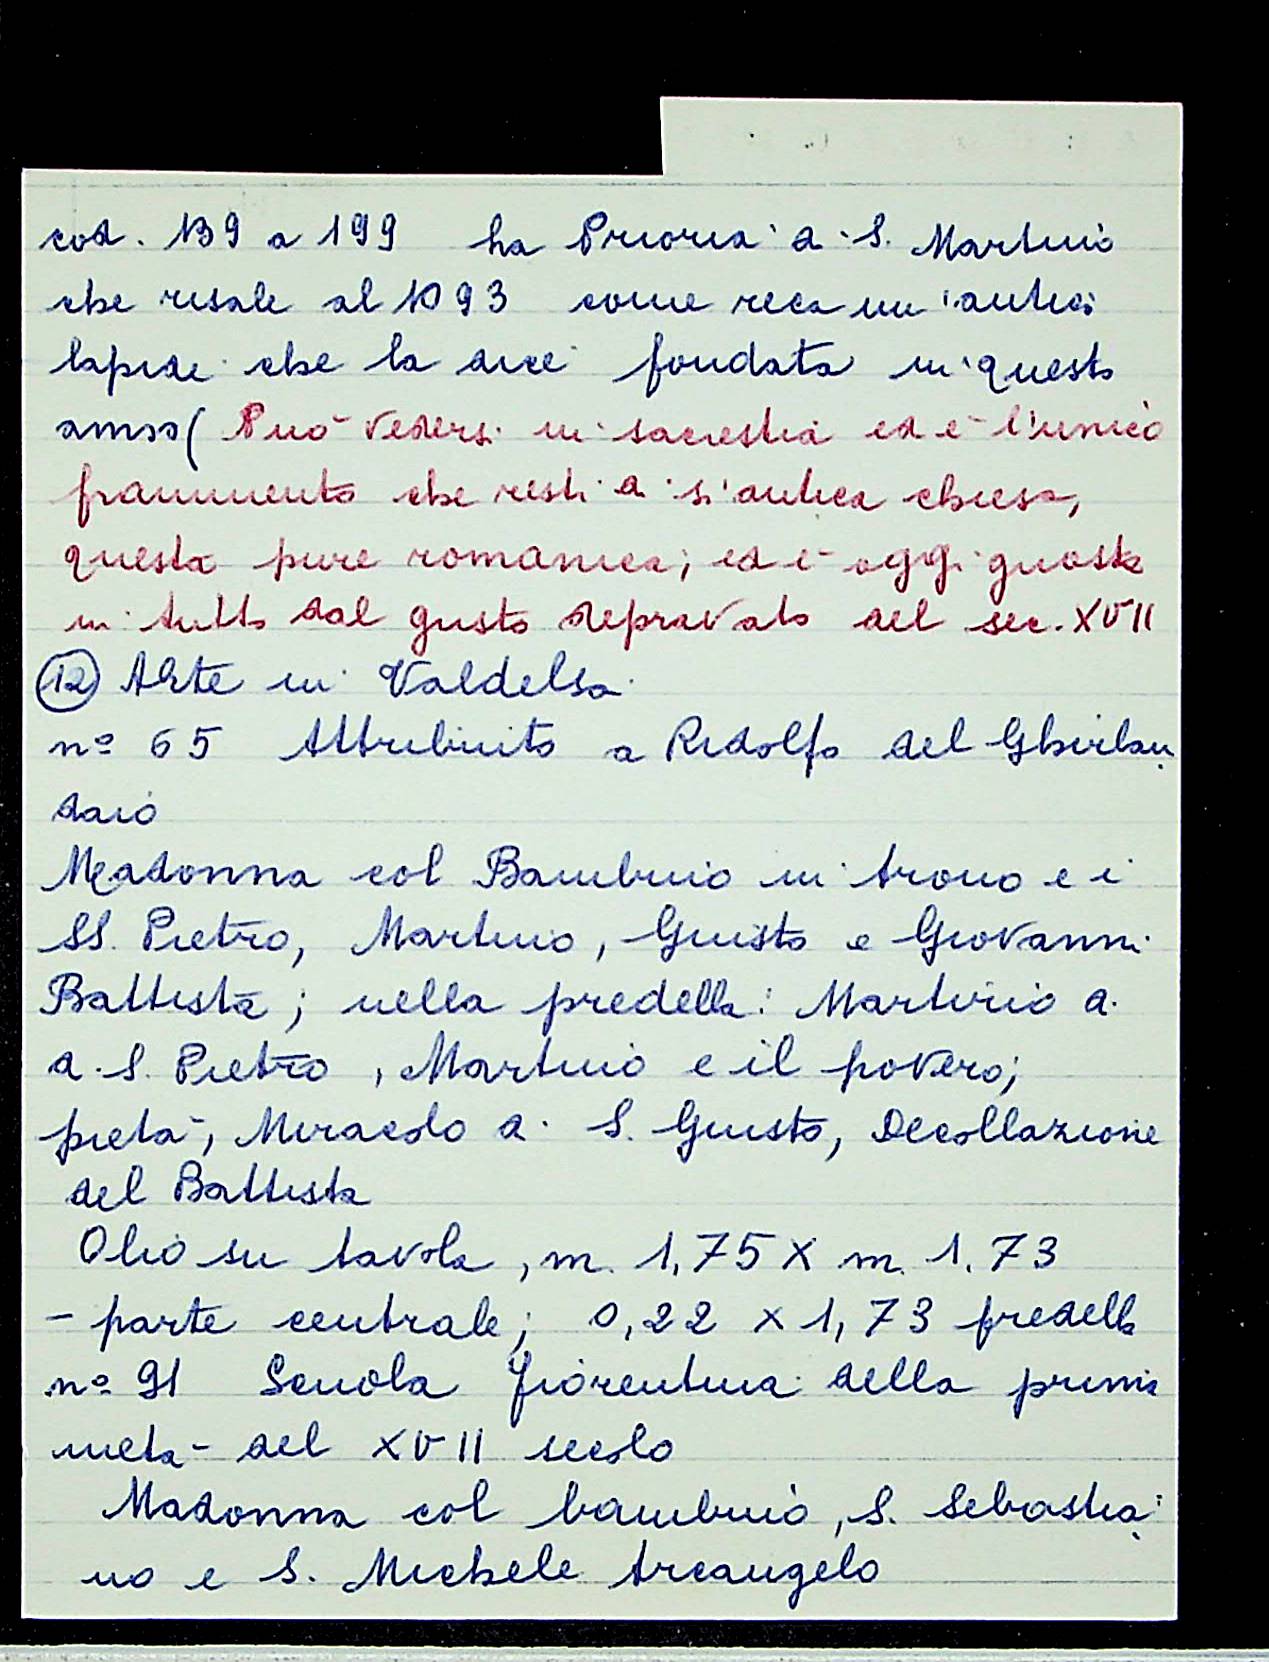 cod. 139 a 199 La Prioria di S. Martino
che risale al 1093 come reca un'antica
lapide che la dice fondata in questo
anno (Può vedersi in sacrestia ed è l'unico
frammento che resti di s'antica chiesa,
questa pure romanica; ed è oggi guasta
in tutto dal gusto depravato del sec. XVII
(12) Arte in Valdelsa
nº 65 Attribuito a Ridolfo del Ghirlan
daio
Madonna col Bambino in trono e i
SS. Pietro, Martino, Giusto e Giovanni
Battista; nella predella: Martirio di
di S. Pietro, Martino e il povero;
pietà, Miracolo di S. Giusto, Decollazione
del Battista
Olio su tavola, m. 1,75 x m. 1.73
- parte centrale; 0,22 x 1,73 predella
nº 91 Scuola fiorentina della prima
metà del XVII secolo
Madonna col bambino, S. Sebastia
no e S. Michele Arcangelo